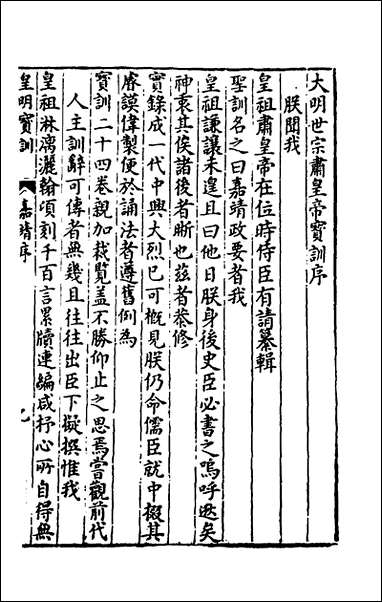 大明世宗肅皇帝寳訓序
朕聞我
皇祖肅皇帝在位時侍臣有請纂輯
聖訓名之曰嘉靖政要者我
皇祖謙讓未遑且曰他日朕身後史臣必書之嗚呼逖矣
神衷其俟諸後者晰也兹者恭修
實錄成一代中興大烈已可概見朕仍命儒臣就中掇其
睿謨偉製便於誦法者遵舊例為
寳訓二十四卷親加裁覽盖不勝仰止之思焉嘗觀前代
人主訓辭可傳者無幾且往往出臣下擬撰惟我
皇祖淋漓灑翰頃刻千百言累牘連編咸抒心所自得無
皇明寳訓 嘉靖序